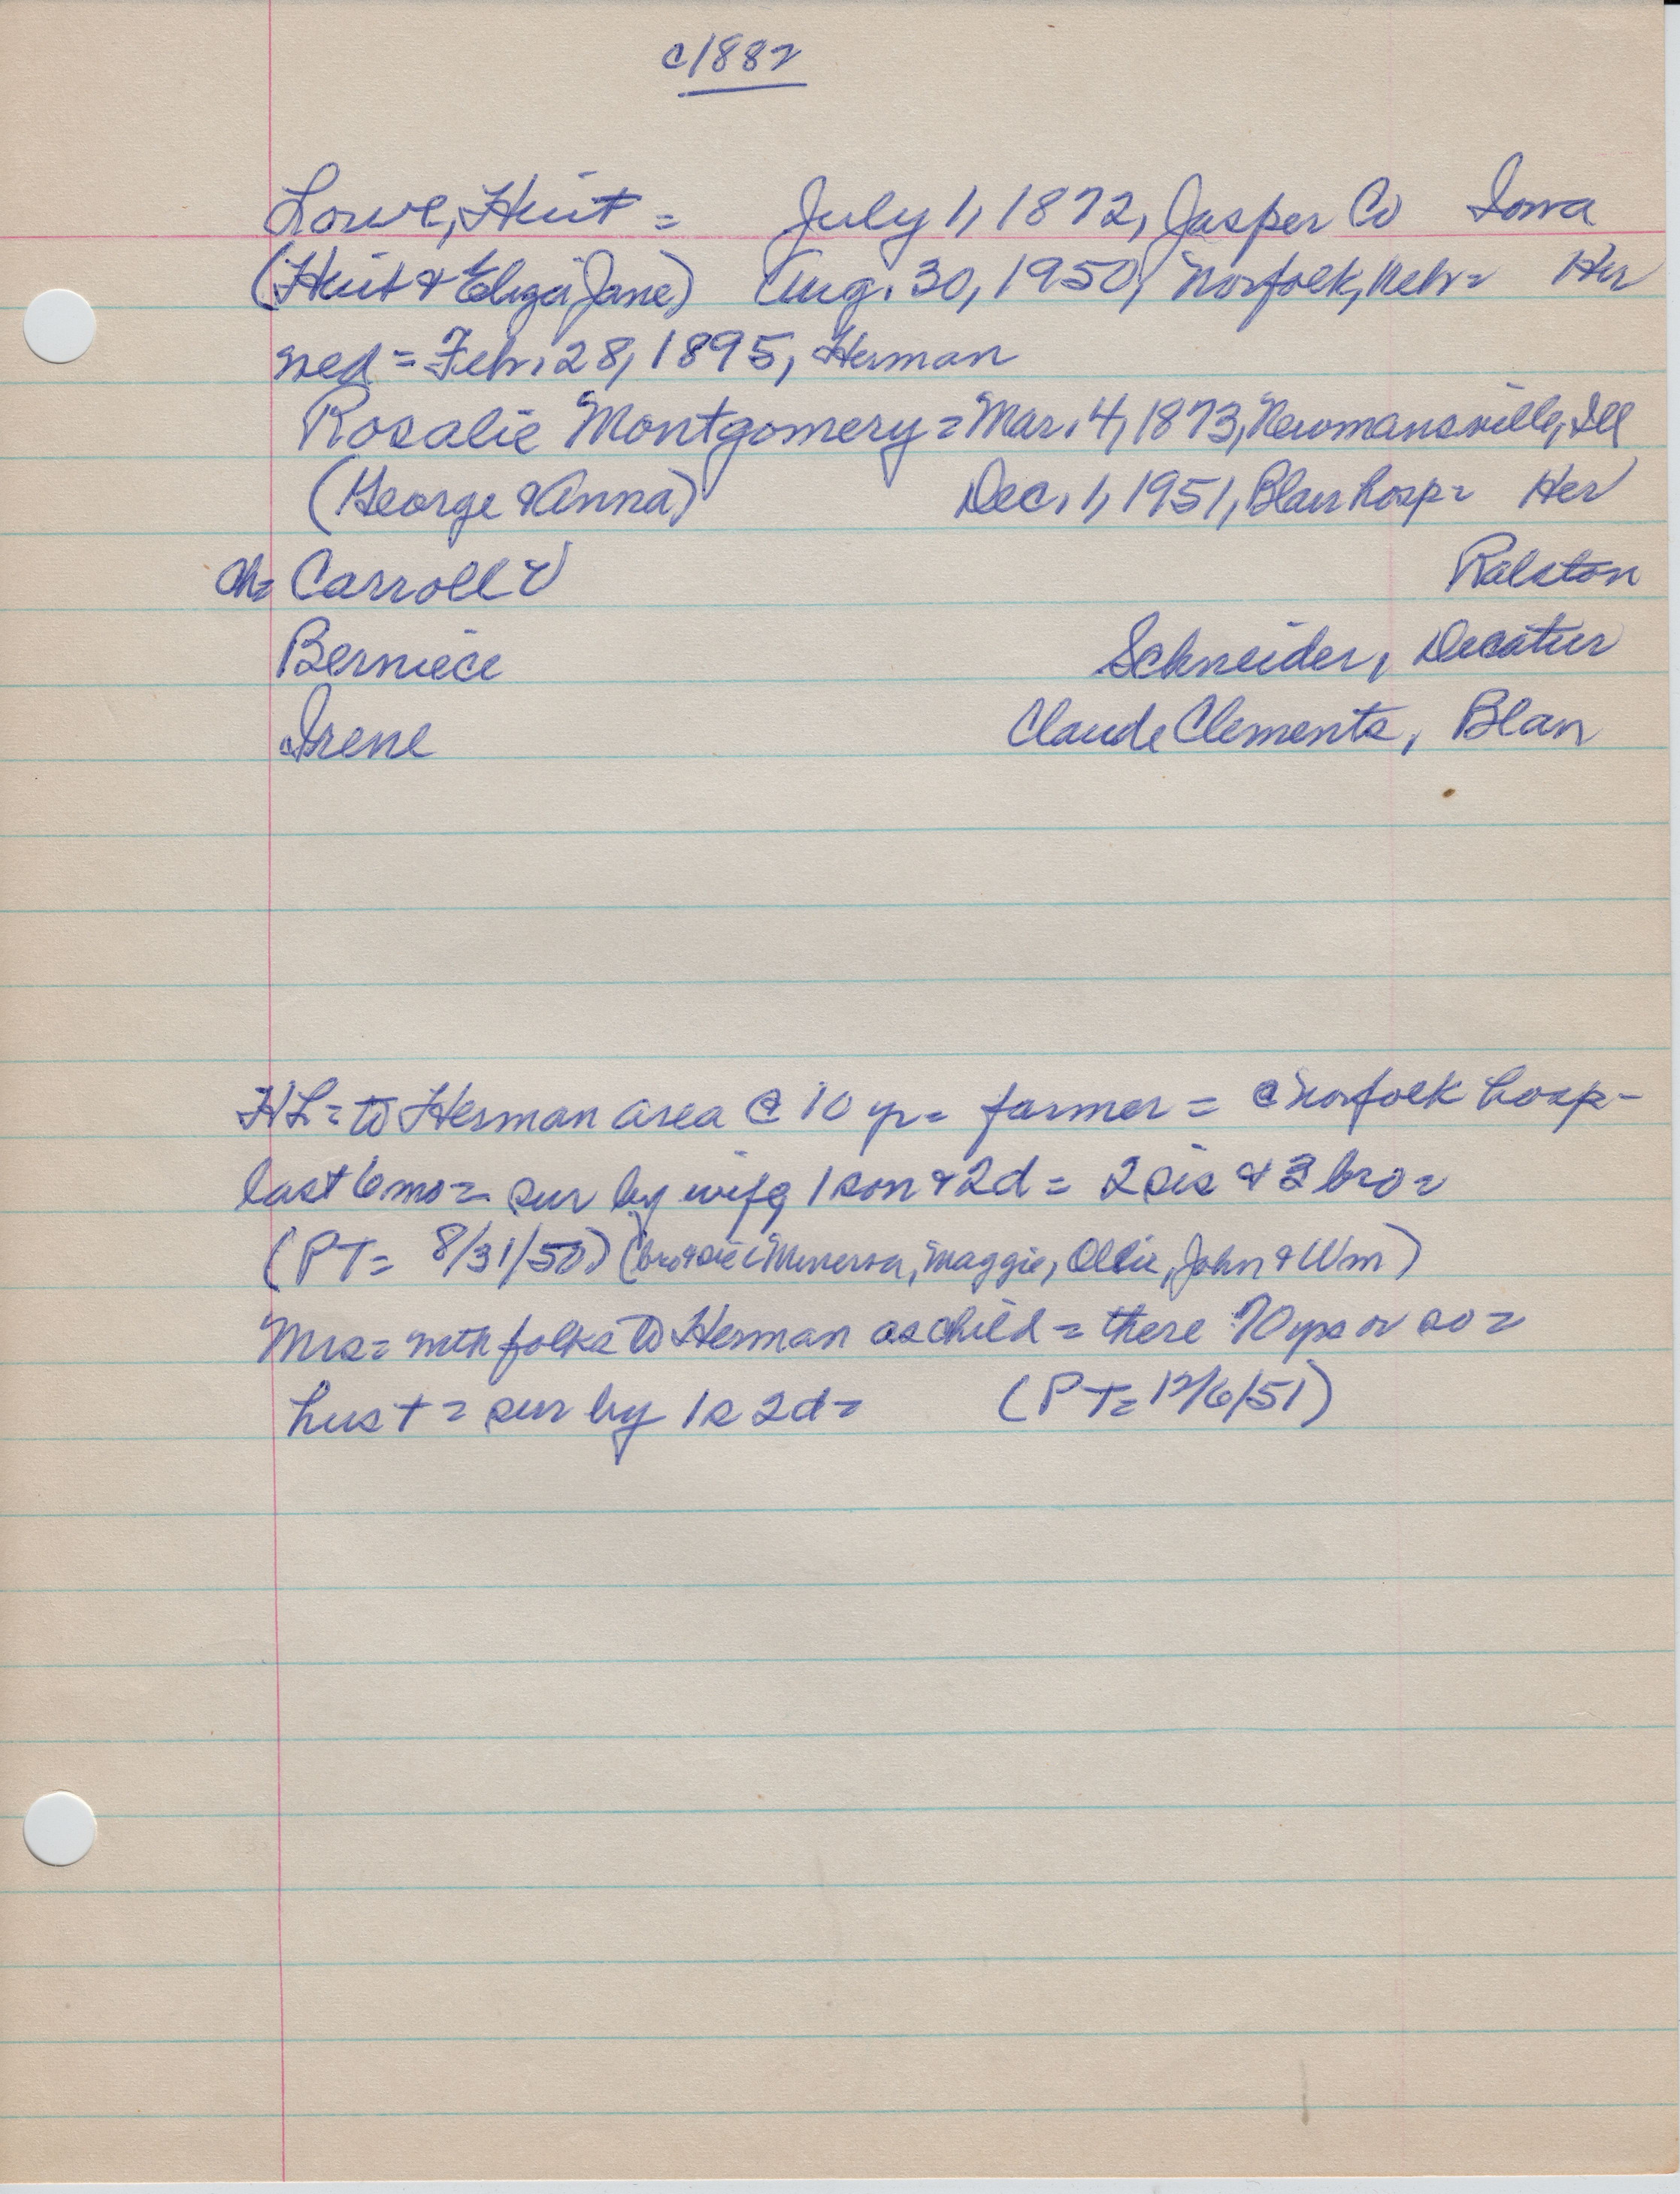 c1882
Lowe, Hiut = July 1, 1872, Jasper Co Iowa
(Hiut & Eliza Jane) Aug. 30, 1950, Norfolk, Nebr = Her
wed = Feb. 28, 1895, Herman
Rosalie Montgomery = Mar. 4, 1873, Newmansville, Ill
(George & Anna) Dec. 1, 1951, Blair hosp = Her
ch = Carroll V Ralston
Berniece Schneider, Decatur
Irene Claude Clements, Blair
HL = to Herman area @ 10 yr = farmer = @ Norfolk hosp -
last 6 mo = sur by wife, 1 son & 2d = 2 sis & 3 bro =
(PT = 8/31/50) (bro & sis = Minerva, Maggie, Ollie, John & Wm)
Mrs = with folks to Herman as child = there 70 yrs or so =
hus + = sur by 1s 2d = (PT = 12/6/51)